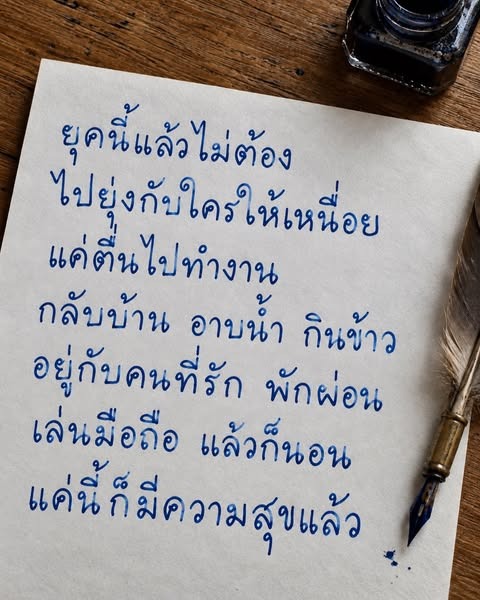 ยุคนี้แล้วไม่ต้อง
ไปยุ่งกับใครให้เหนื่อย
แค่ตื่นไปทำงาน
กลับบ้าน อาบน้ำ กินข้าว
อยู่กับคนที่รัก พักผ่อน
เล่นมือถือ แล้วก็นอน
แค่นี้ ก็มีความสุขแล้ว